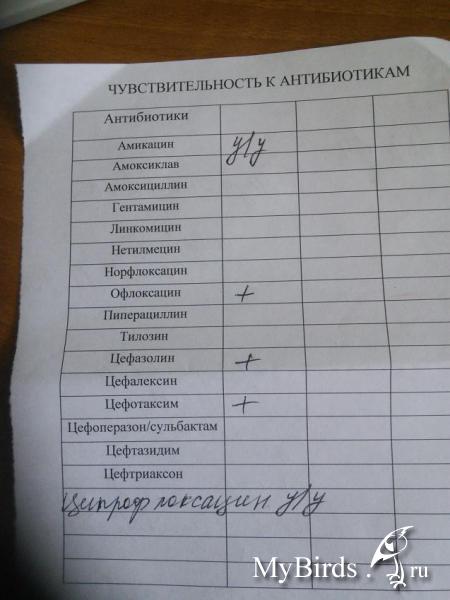 ЧУВСТВИТЕЛЬНОСТЬ К АНТИБИОТИКАМ
Антибиотики
Амикацин у/у
Амоксиклав
Амоксициллин
Гентамицин
Линкомицин
Нетилмецин
Норфлоксацин
Офлоксацин +
Пиперациллин
Тилозин
Цефазолин +
Цефалексин
Цефотаксим +
Цефоперазон/сульбактам
Цефтазидим
Цефтриаксон
Ципрофлоксацин у/у
MyBirds.ru